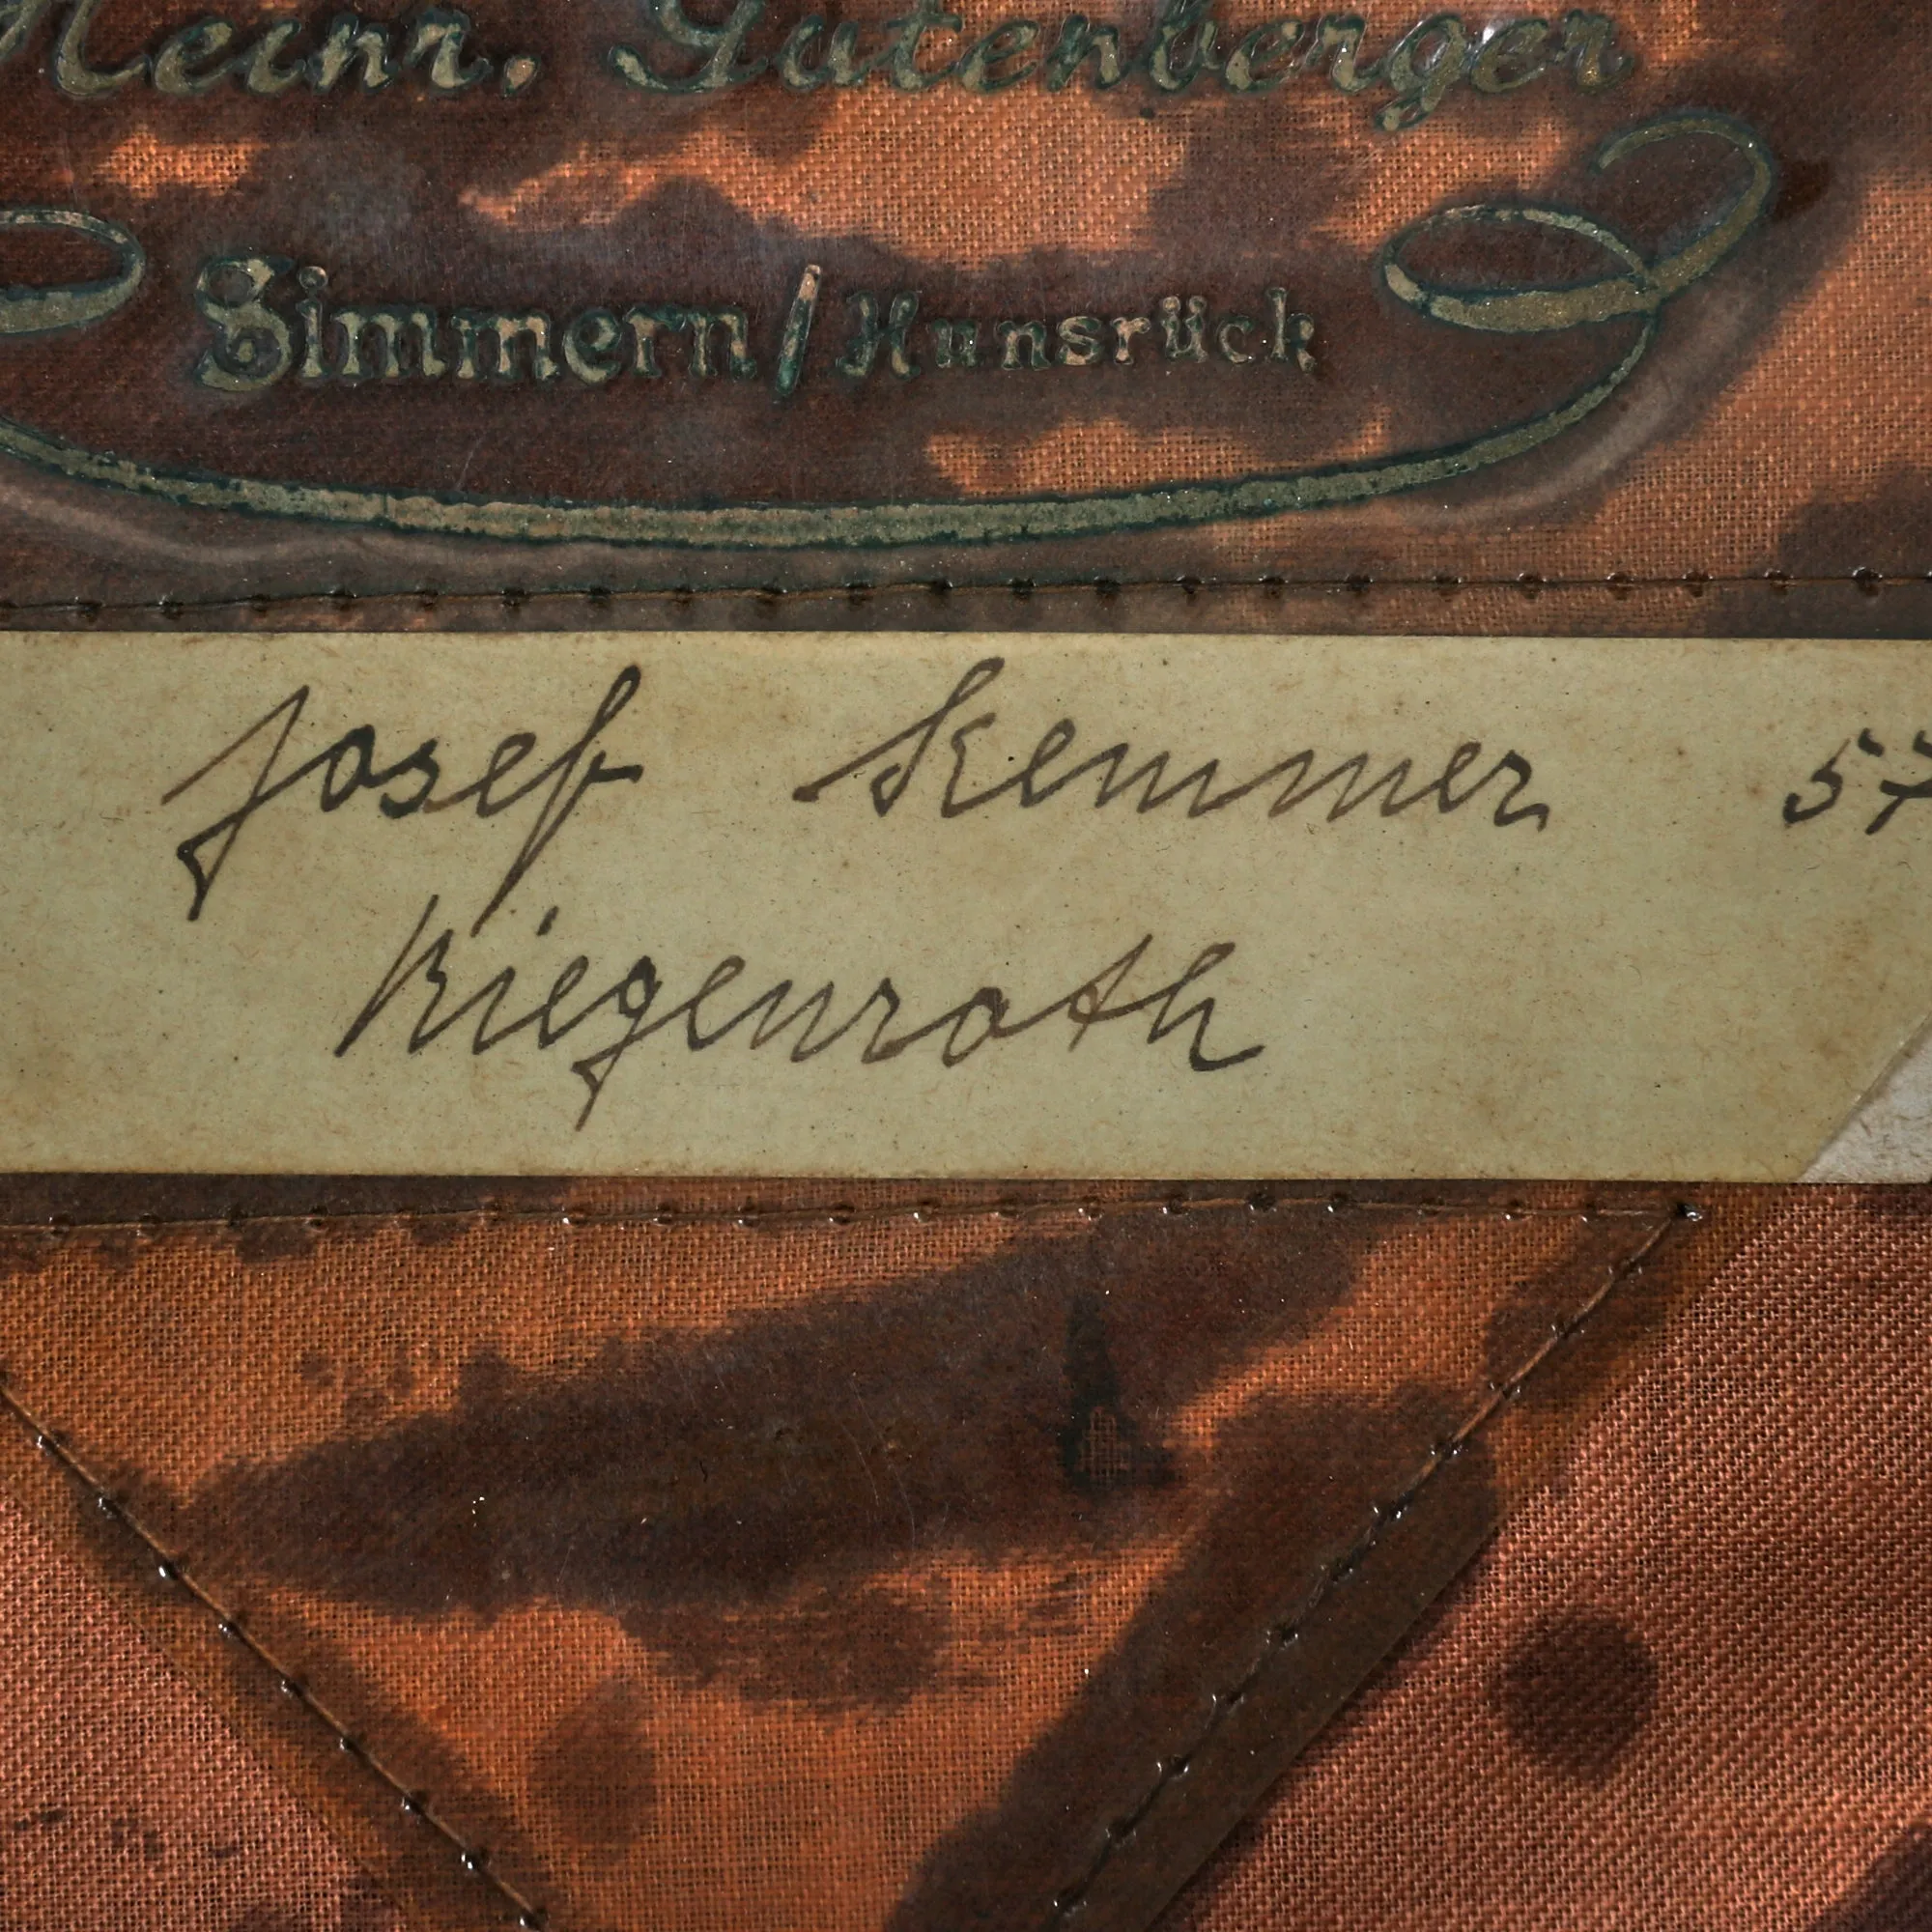 Heinr. Gutenberger
Simmern/Hunsrück
Josef Kemmer 57
Riegenroth